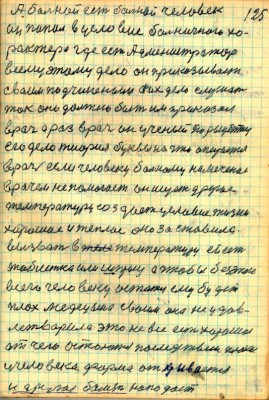 А больной ест больной человек 125
он попал в целовие больничного ха-
рактера где ест Администратор
всему этому дело он приказывает
своим подчиненым их дело слушат
так оно должно быт им приказал
врач а раз врач он ученый по
его дело теория буквы на это опирается
врач если человеку больному
врачем не помогает он ищет другое
температуру создает целовие жизни
хорошое и теплое оно заставило
вызват в температуру ей ест
таблетка или шприц а то бы без
всего человеку остатки ему будет
плох медецына своим оно не удов-
летварила это не все ест хорошо
от чего остаются последствии
у человека форма открывается
и другая болезн нападает